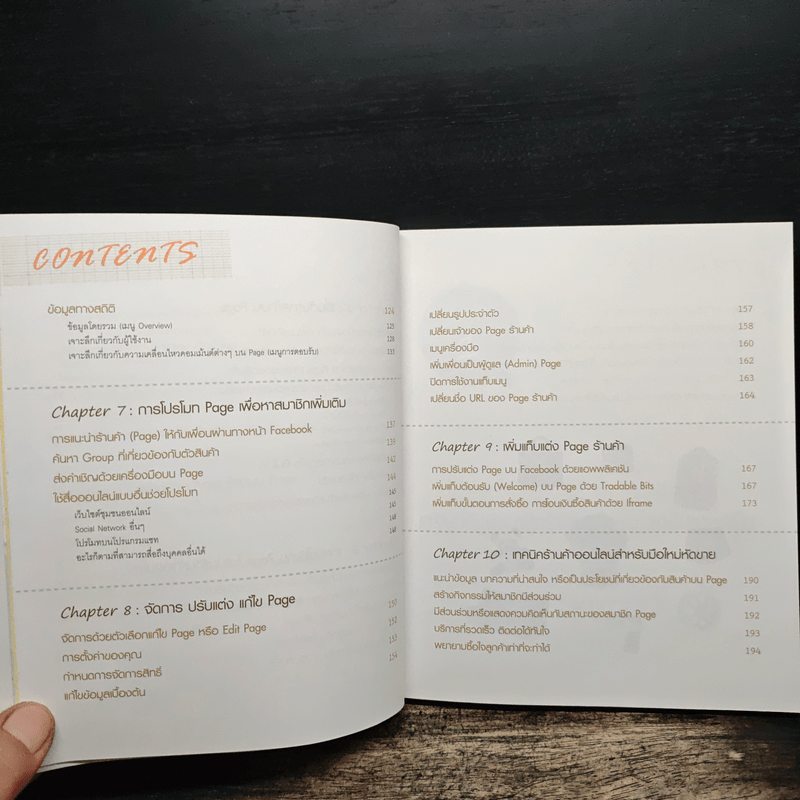 CONTENTS
ข้อมูลทางสถิติ 124
ข้อมูลโดยรวม (เมนู Overview) 125
เจาะลึกเกี่ยวกับผู้ใช้งาน 128
เจาะลึกเกี่ยวกับความเคลื่อนไหวคอมเม้นต์ต่างๆ บน Page (เมนูการตอบรับ) 133
Chapter 7 : การโปรโมท Page เพื่อหาสมาชิกเพิ่มเติม
การแนะนำร้านค้า (Page) ให้กับเพื่อนผ่านทางหน้า Facebook 137
ค้นหา Group ที่เกี่ยวข้องกับตัวสินค้า 139
ส่งคำเชิญด้วยเครื่องมือบน Page 142
ใช้สื่อออนไลน์แบบอื่นช่วยโปรโมท 144
เว็บไซต์ชุมชนออนไลน์ 145
Social Network อื่นๆ 145
โปรโมทบนโปรแกรมแชท 148
อะไรก็ตามที่สามารถสื่อถึงบุคคลอื่นได้ 148
Chapter 8 : จัดการ ปรับแต่ง แก้ไข Page
จัดการด้วยตัวเลือกแก้ไข Page หรือ Edit Page 150
การตั้งค่าของคุณ 152
กำหนดการจัดการสิทธิ์ 153
แก้ไขข้อมูลเบื้องต้น 154
เปลี่ยนรูปประจำตัว 157
เปลี่ยนเจ้าของ Page ร้านค้า 158
เมนูเครื่องมือ 160
เพิ่มเพื่อนเป็นผู้ดูแล (Admin) Page 162
ปิดการใช้งานแท็บเมนู 163
เปลี่ยนชื่อ URL ของ Page ร้านค้า 164
Chapter 9 : เพิ่มแท็บแต่ง Page ร้านค้า
การปรับแต่ง Page บน Facebook ด้วยแอพพลิเคชัน 167
เพิ่มแท็บต้อนรับ (Welcome) บน Page ด้วย Tradable Bits 167
เพิ่มแท็บขั้นตอนการสั่งซื้อ การโอนเงินซื้อสินค้าด้วย Iframe 173
Chapter 10 : เทคนิคร้านค้าออนไลน์สำหรับมือใหม่หัดขาย
แนะนำข้อมูล บทความที่น่าสนใจ หรือเป็นประโยชน์ที่เกี่ยวข้องกับสินค้าบน Page 190
สร้างกิจกรรมให้สมาชิกมีส่วนร่วม 191
มีส่วนร่วมหรือแสดงความคิดเห็นกับสถานะของสมาชิก Page 192
บริการที่รวดเร็ว ติดต่อได้ทันใจ 193
พยายามซื้อใจลูกค้าเท่าที่จะทำได้ 194